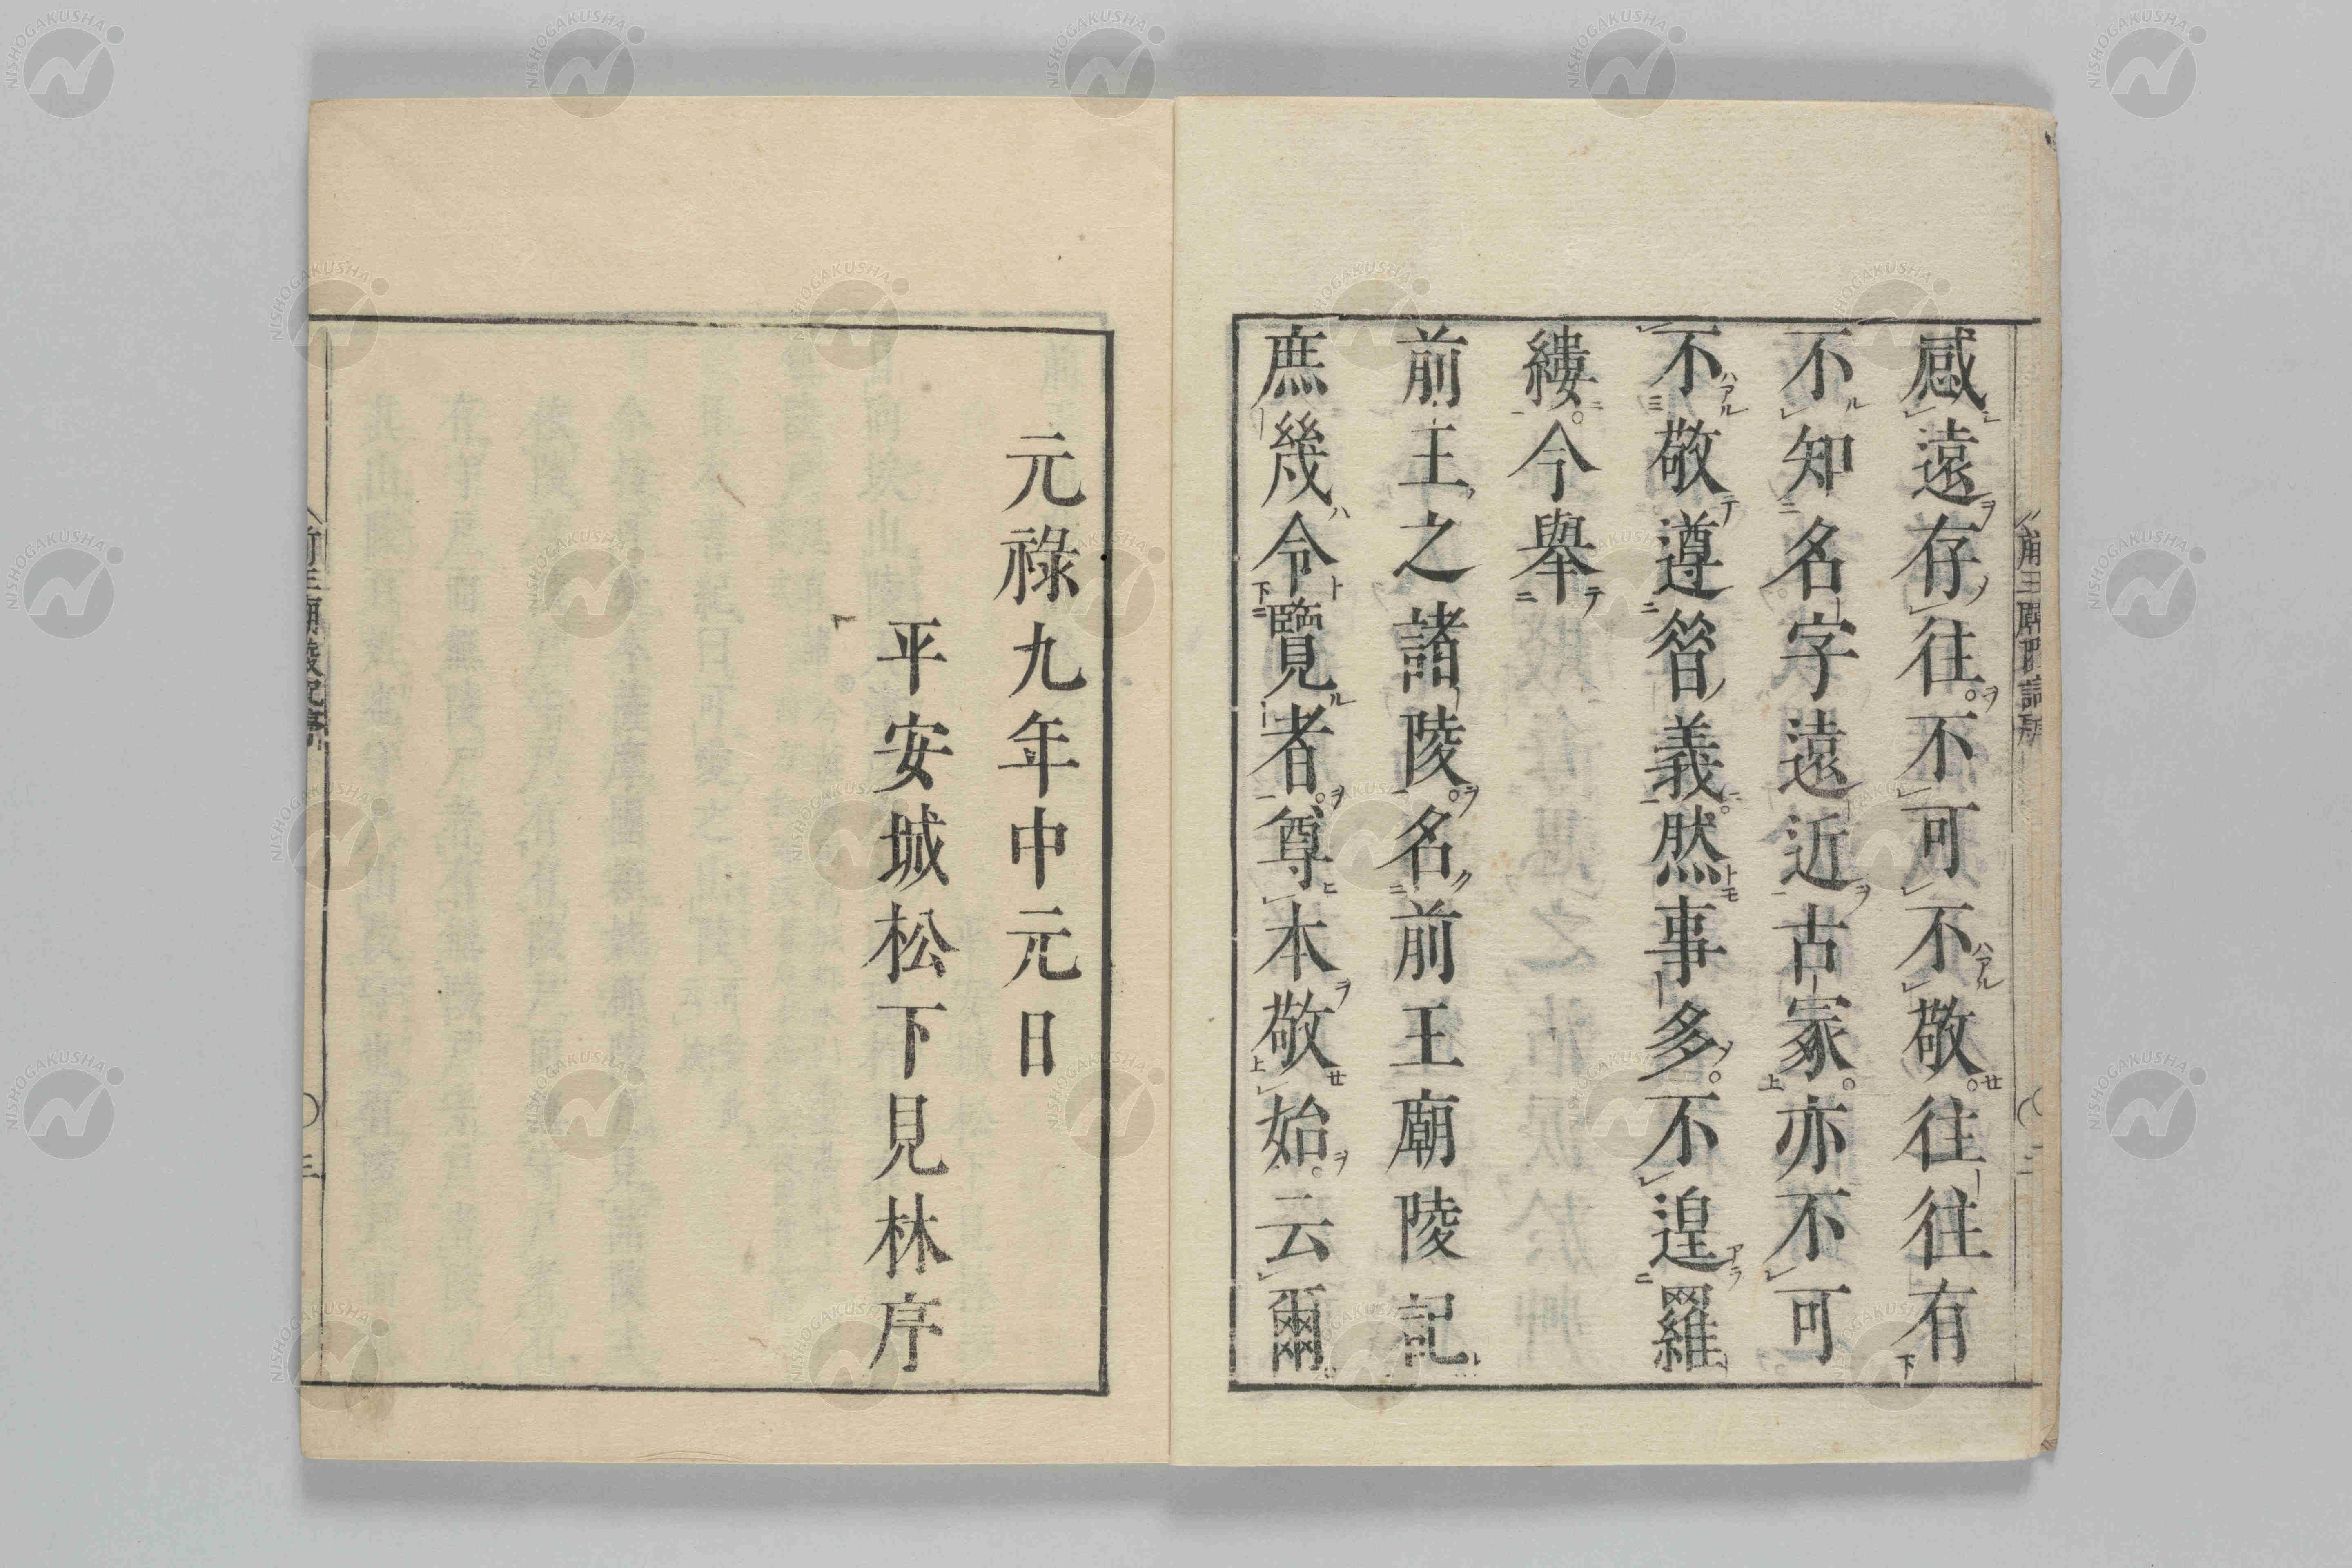 感遠存往。不可不敬。往往有
不知名字遠近古冢。亦不可
不敬遵答義。然事多。不遑羅
縷。今舉
前王之諸陵。名前王廟陵記
庶幾令覽者。尊本敬始。云爾。
元祿九年中元日
平安城松下見林序
前王廟陵記序
〇三
NISHOGAKUSHA